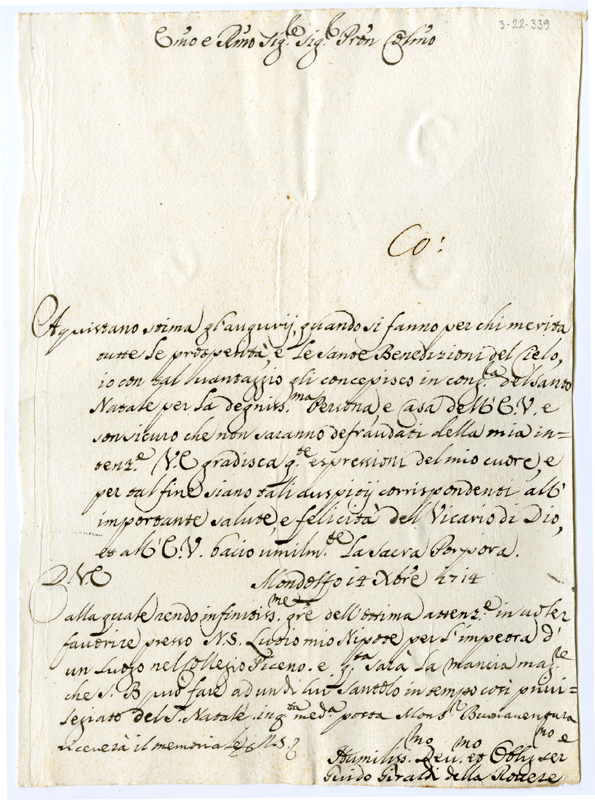 3-22-339
Emo e Rmo Sig.re Sig.re Pron Colmo
Co:
Aquistano stima gl'augurij, quando si fanno per chi merita
tutte le prosperità, e le Sante Benedizioni del Cielo,
io con tal vantaggio gli concepisco in cong.ra del Santo
Natale per la degniss.ma Persona e Casa dell'E.V. e
son sicuro che non saranno defraudati della mia in=
tenz.e V.E gradisca q.te espressioni del mio cuore, e
per tal fine siano tali auspicij corrispondenti all'
importante salute, e felicità dell Vicario di Dio,
et all'E.V. bacio umilm.te La Sacra Porpora.
D.V.E Mondolfo 14 Xbre 1714
alla quale rendo infinitiss.me gre dell'ottima attenz.e in voler
favorire presso N.S. mio Nipote per l'impetra d'
un Luogo nel Collegio Piceno. e q.ta sarà la mancia mag.re
che S.B può fare ad un di lui Santolo in tempo così privi=
legiato del S. Natale. in q.ta med.a posta Mons.r Buonaventura
riceverà il memoriale
Humiliss.mo Dev.mo et Obblig.mo Ser.e
Guido Giraldi della Rovere